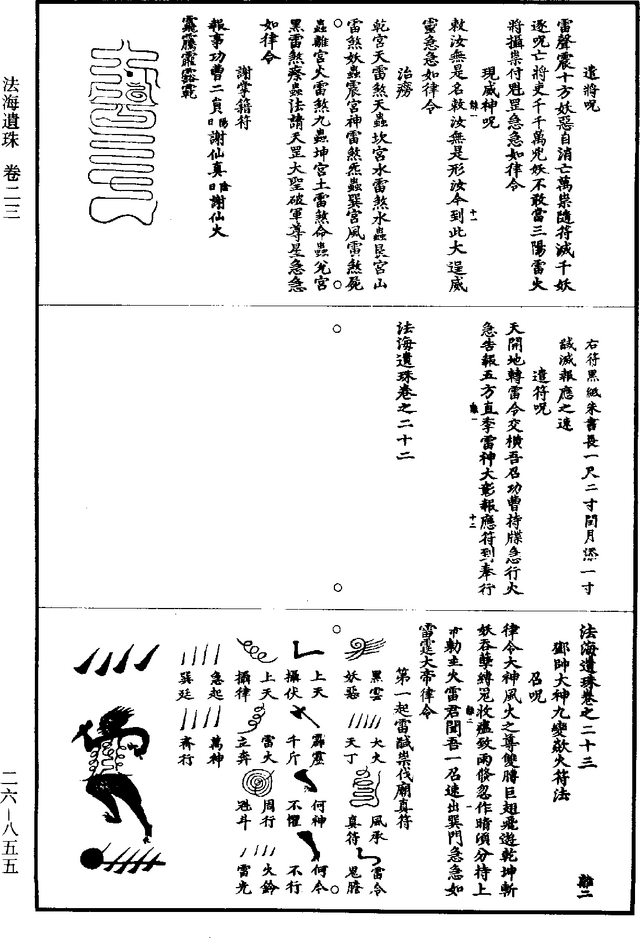 法海遺珠 卷二三
二六—八五五
遣將呪
雷聲震十方妖惡自消亡萬祟隨符滅千妖
逐呪亡將吏千千萬兇妖不敢當三陽雷火
將攝祟付魁罡急急如律令
現威神呪
敕汝無是名敕汝無是形汝今到此大逞威
靈急急如律令
治癆
乾宮天雷煞天蟲坎宮水雷煞水蟲艮宮山
雷煞妖蟲震宮神雷煞炁蟲巽宮風雷煞屍
蟲離宮火雷煞九蟲坤宮土雷煞命蟲兌宮
黑雷煞瘵蟲法請天罡大聖破軍尊星急急
如律令
謝掌籍符
報事功曹二員陽日謝仙真陰日謝仙火
右符黑紙朱書長一尺二寸閏月添一寸
誠滅報應之速
遣符呪
天開地轉雷令交橫吾召功曹持牒急行火
急告報五方直李雷神大彰報應符到奉行
法海遺珠卷之二十二
法海遺珠卷之二十三
難二
鄧帥大神九變歘火符法
召呪
律令大神風火之尊雙膊巨翅飛遊乾坤斬
妖吞孽縛鬼收瘟致雨倏忽作晴頃分持上
帝勅主火雷君聞吾一召速出巽門急急如
雷霆大帝律令
第一起雷馘祟伐廟真符
黑雲
妖惡
大火
天丁
風承
真符
雷令
鬼膽
上天
攝伏
霹靂
千斤
何神
不懼
何令
不行
上天
攝律
雷火
立奔
周行
魁斗
火鈴
雷光
急起
巽廷
萬神
齊行